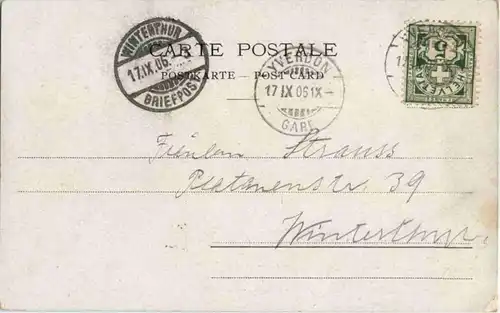 CARTE POSTALE
POSTKARTE - POST-CARD
WINTERTHUR
17.IX.06.
BRIEFPOST
YVERDON
17 IX 06 IX-
GARE
5
HELVETIA
Fräulein Strauss
Platanenstr. 39
Winterthur